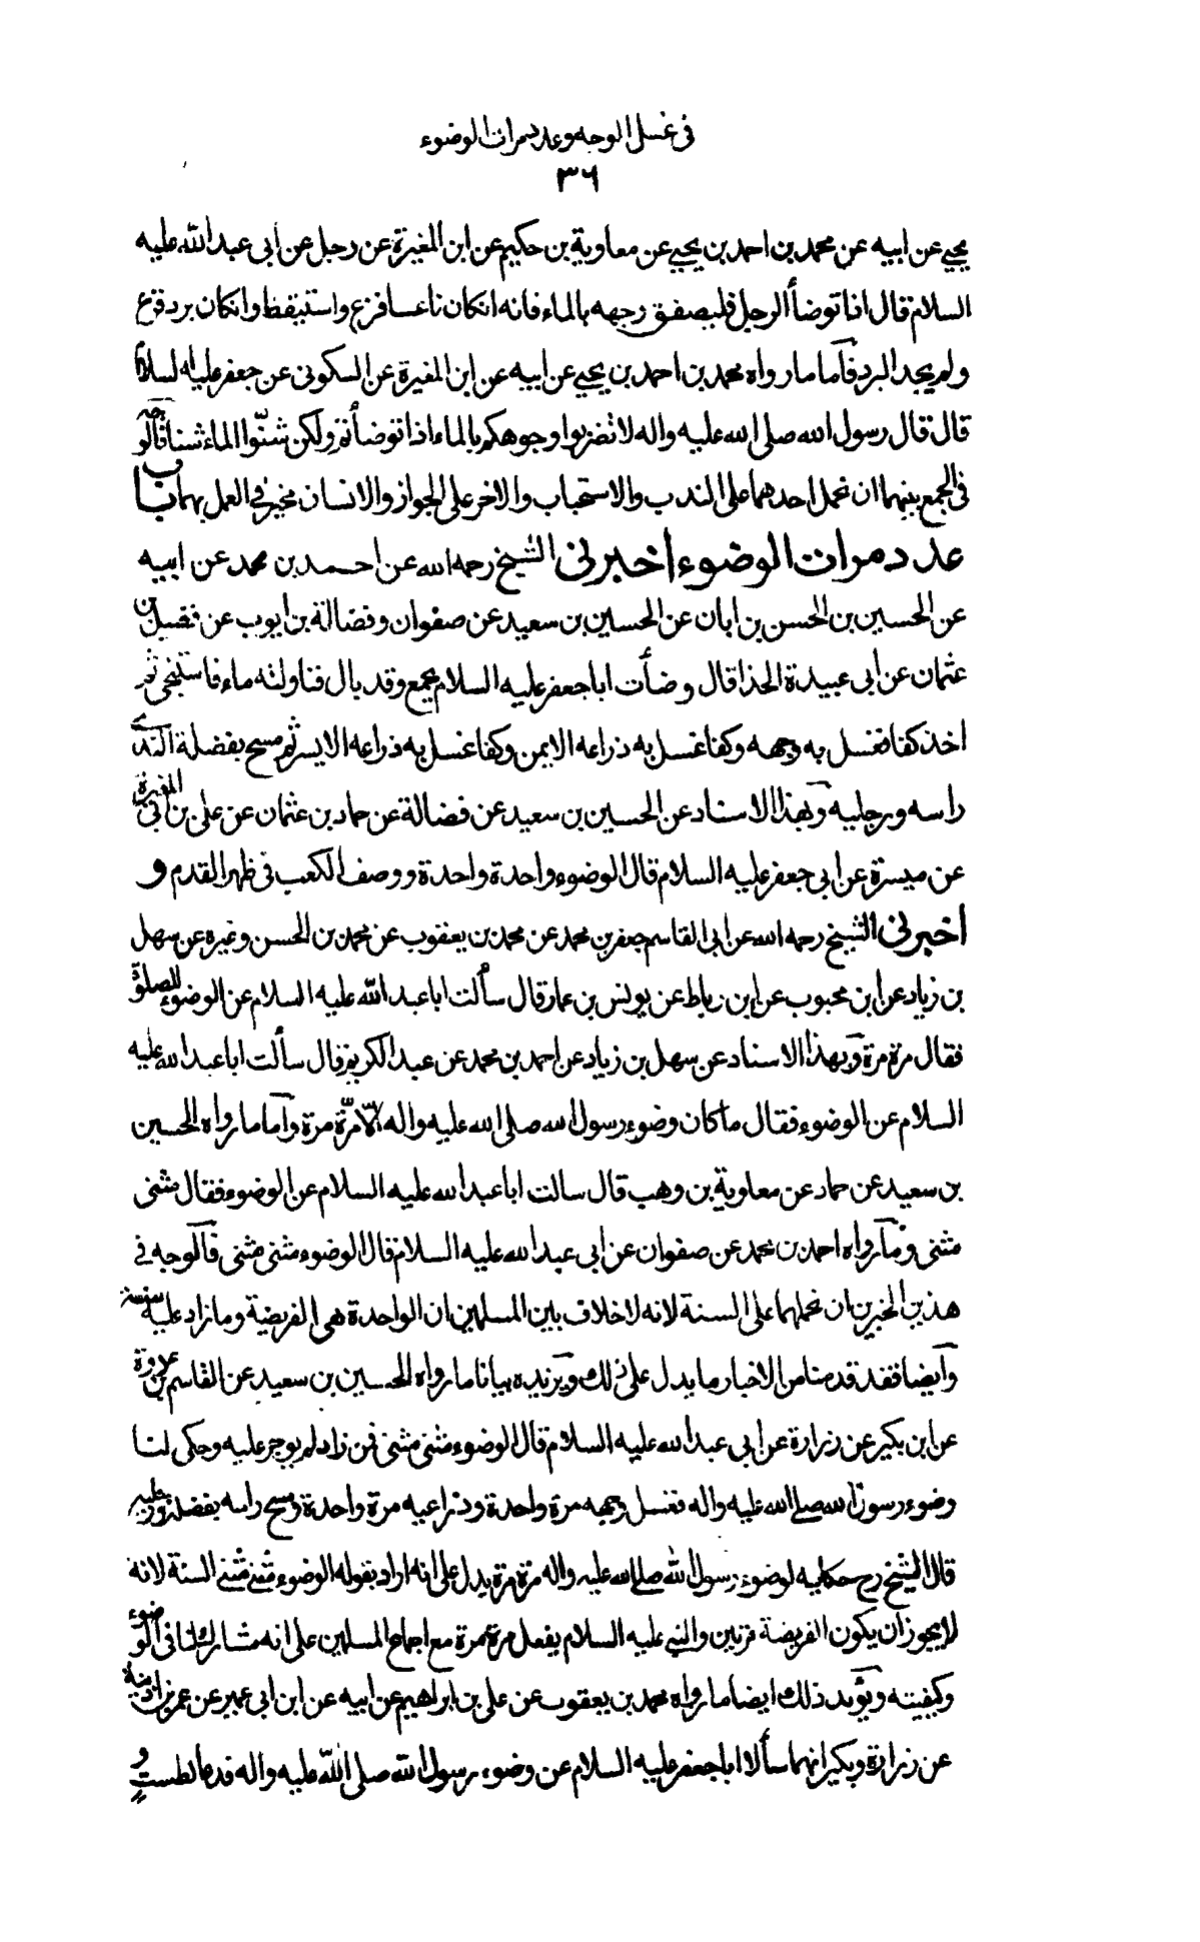 فى غسل الوجه وعدد مرات الوضوء
٣٦
يحيى عن ابيه عن محمد بن احمد بن يحيى عن معاوية بن حكيم عن ابن المغيرة عن رجل عن أبى عبد الله عليه
السلام قال اذا توضأ الرجل فليصفق وجهه بالماء فانه ان كان ناعسا فزع واستيقظ وان كان برد فزع
ولم يجد البرد فاما ما رواه محمد بن احمد بن يحيى عن ابيه عن ابن المغيرة عن السكونى عن جعفر عليه السلام
قال قال رسول الله صلى الله عليه واله لا تضربوا وجوهكم بالماء اذا توضأتم ولكن شنّوا الماء شنا فالوجه
فى الجمع بينهما ان نحمل احدهما على الندب والاستحباب والاخر على الجواز والانسان مخير فى العمل بهما باب
عدد مرات الوضوء اخبرنى الشيخ رحمه الله عن احمد بن محمد عن ابيه
عن الحسين بن الحسن بن ابان عن الحسين بن سعيد عن صفوان وفضالة بن ايوب عن فضيل بن
عثمان عن ابى عبيدة الحذا قال وضأت ابا جعفر عليه السلام بجمع وقد بال فناولته ماء فاستنجى ثم
اخذ كفا فغسل به وجهه وكفا غسل به ذراعه الايمن وكفا غسل به ذراعه الايسر ثم مسح بفضلة الندى
راسه ورجليه وبهذا الاسناد عن الحسين بن سعيد عن فضالة عن حماد بن عثمان عن على بن ابى المغيرة
عن ميسرة عن ابى جعفر عليه السلام قال الوضوء واحدة واحدة ووصف الكعب فى ظهر القدم و
اخبرنى الشيخ رحمه الله عن ابى القاسم جعفر بن محمد عن محمد بن يعقوب عن محمد بن الحسن وغيره عن سهل
بن زياد عن ابن محبوب عن ابن رباط عن يونس بن عمار قال سألت ابا عبد الله عليه السلام عن الوضوء للصلوة
فقال مرة مرة وبهذا الاسناد عن سهل بن زياد عن احمد بن محمد عن عبد الكريم قال سألت ابا عبد الله عليه
السلام عن الوضوء فقال ما كان وضوء رسول الله صلى الله عليه واله الّا مرّة مرة وآما ما رواه الحسين
بن سعيد عن حماد عن معاوية بن وهب قال سالت ابا عبد الله عليه السلام عن الوضوء فقال مثنى
مثنى وما رواه احمد بن محمد عن صفوان عن ابى عبد الله عليه السلام قال الوضوء مثنى مثنى فالوجه فى
هذين الخبرين ان نحملهما على السنة لانه لا خلاف بين المسلمين ان الواحدة هى الفريضة وما زاد عليه سنة
وآيضا فقد قدمنا من الاخبار ما يدل على ذلك ويزيده بيانا ما رواه الحسين بن سعيد عن القاسم بن عروة
عن ابن بكير عن زرارة عن ابى عبد الله عليه السلام قال الوضوء مثنى مثنى فمن زاد لم يوجر عليه وحكى لنا
وضوء رسول الله صلى الله عليه واله فغسل وجهه مرة واحدة وذراعيه مرة واحدة ومسح راسه بفضل وضوئه ورجليه
قال الشيخ رح حكايه لوضوء رسول الله صلى الله عليه واله مرة مرة يدل على انه اراد بقوله الوضوء مثنى مثنى السنة لانه
لا يجوز أن يكون الفريضة مرتين والنبى عليه السلام يفعل مرة مرة مع اجماع المسلمين على انه مشارك لنا فى الوضوء
وكيفيته ويؤيد ذلك ايضا ما رواه محمد بن يعقوب عن على بن ابراهيم عن ابيه عن ابن ابى عمير عن عمر بن اذينة
عن زرارة وبكير انهما سألا ابا جعفر عليه السلام عن وضوء رسول الله صلى الله عليه واله فدعا بطست و